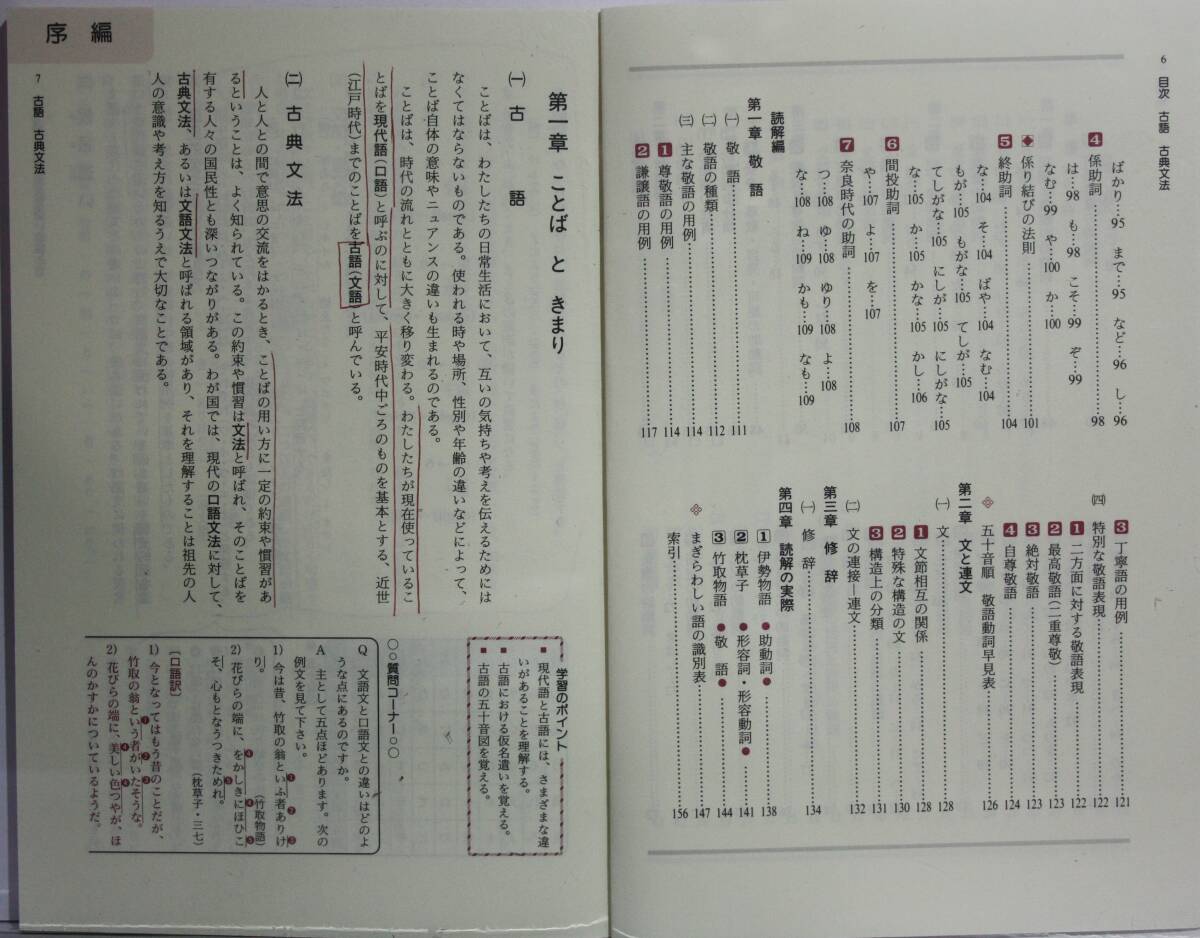 6 目次 古語 古典文法
ばかり…95 まで…95 など…96 し…96
4 係助詞……98
は…98 も…98 こそ…99 ぞ…99
なむ…99 や…100 か…100
◆ 係り結びの法則……101
5 終助詞……104
な…104 そ…104 ばや…104 なむ…104
もが…105 もがな…105 てしが…105
てしがな…105 にしが…105 にしがな…105
な…105 か…105 かな…105 かし…106
6 間投助詞……107
や…107 よ…107 を…107
7 奈良時代の助詞……108
つ…108 ゆ…108 ゆり…108 よ…108
な…108 ね…109 かも…109 なも…109
読解編
第一章 敬語
㈠ 敬語……111
㈡ 敬語の種類……112
㈢ 主な敬語の用例……114
1 尊敬語の用例……114
2 謙譲語の用例……117
3 丁寧語の用例……121
㈣ 特別な敬語表現……122
1 二方面に対する敬語表現……122
2 最高敬語(二重尊敬)……123
3 絶対敬語……123
4 自尊敬語……124
五十音順 敬語動詞早見表……126
第二章 文と連文
㈠ 文……128
1 文節相互の関係……128
2 特殊な構造の文……130
3 構造上の分類……131
㈡ 文の連接―連文……132
第三章 修辞
㈠ 修辞……134
第四章 読解の実際
1 伊勢物語 ●助動詞●……138
2 枕草子 ●形容詞・形容動詞●……141
3 竹取物語 ●敬語●……144
まぎらわしい語の識別表……147
索引……156
序編
第一章 ことば と きまり
㈠ 古語
ことばは、わたしたちの日常生活において、互いの気持ちや考えを伝えるためには
なくてはならないものである。使われる時や場所、性別や年齢の違いなどによって、
ことば自体の意味やニュアンスの違いも生まれるのである。
ことばは、時代の流れとともに大きく移り変わる。わたしたちが現在使っているこ
とばを現代語(口語)と呼ぶのに対して、平安時代中ごろのものを基本とする、近世
(江戸時代)までのことばを古語(文語)と呼んでいる。
㈡ 古典文法
人と人との間で意思の交流をはかるとき、ことばの用い方に一定の約束や慣習があ
るということは、よく知られている。この約束や慣習は文法と呼ばれ、そのことばを
有する人々の国民性とも深いつながりがある。わが国では、現代の口語文法に対して、
古典文法、あるいは文語文法と呼ばれる領域があり、それを理解することは祖先の人
人の意識や考え方を知るうえで大切なことである。
7 古語 古典文法
学習のポイント
■ 現代語と古語には、さまざまな違
いがあることを理解する。
■ 古語における仮名遣いを覚える。
■ 古語の五十音図を覚える。
○○質問コーナー○○
Q 文語文と口語文との違いはどのよ
うな点にあるのですか。
A 主として五点ほどあります。次の
例文を見て下さい。
1) 今は昔、竹取の翁といふ者ありけ
り。 (竹取物語)
2) 花びらの端に、をかしきにほひこ
そ、心もとなうつきためれ。
(枕草子・三七)
〔口語訳〕
1) 今となってはもう昔のことだが、
竹取の翁という者がいたそうな。
2) 花びらの端に、美しい色つやが、ほ
んのかすかについているようだ。